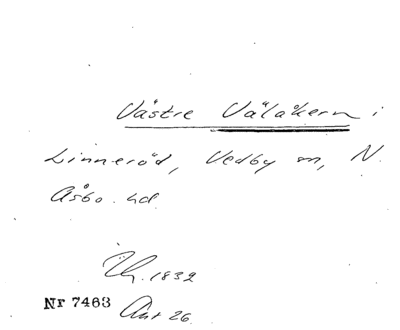 Västre Välåkern i
Linneröd, Vedby sn, N.
Åsbo hd.
1832
Nr 7463
Akt 26.